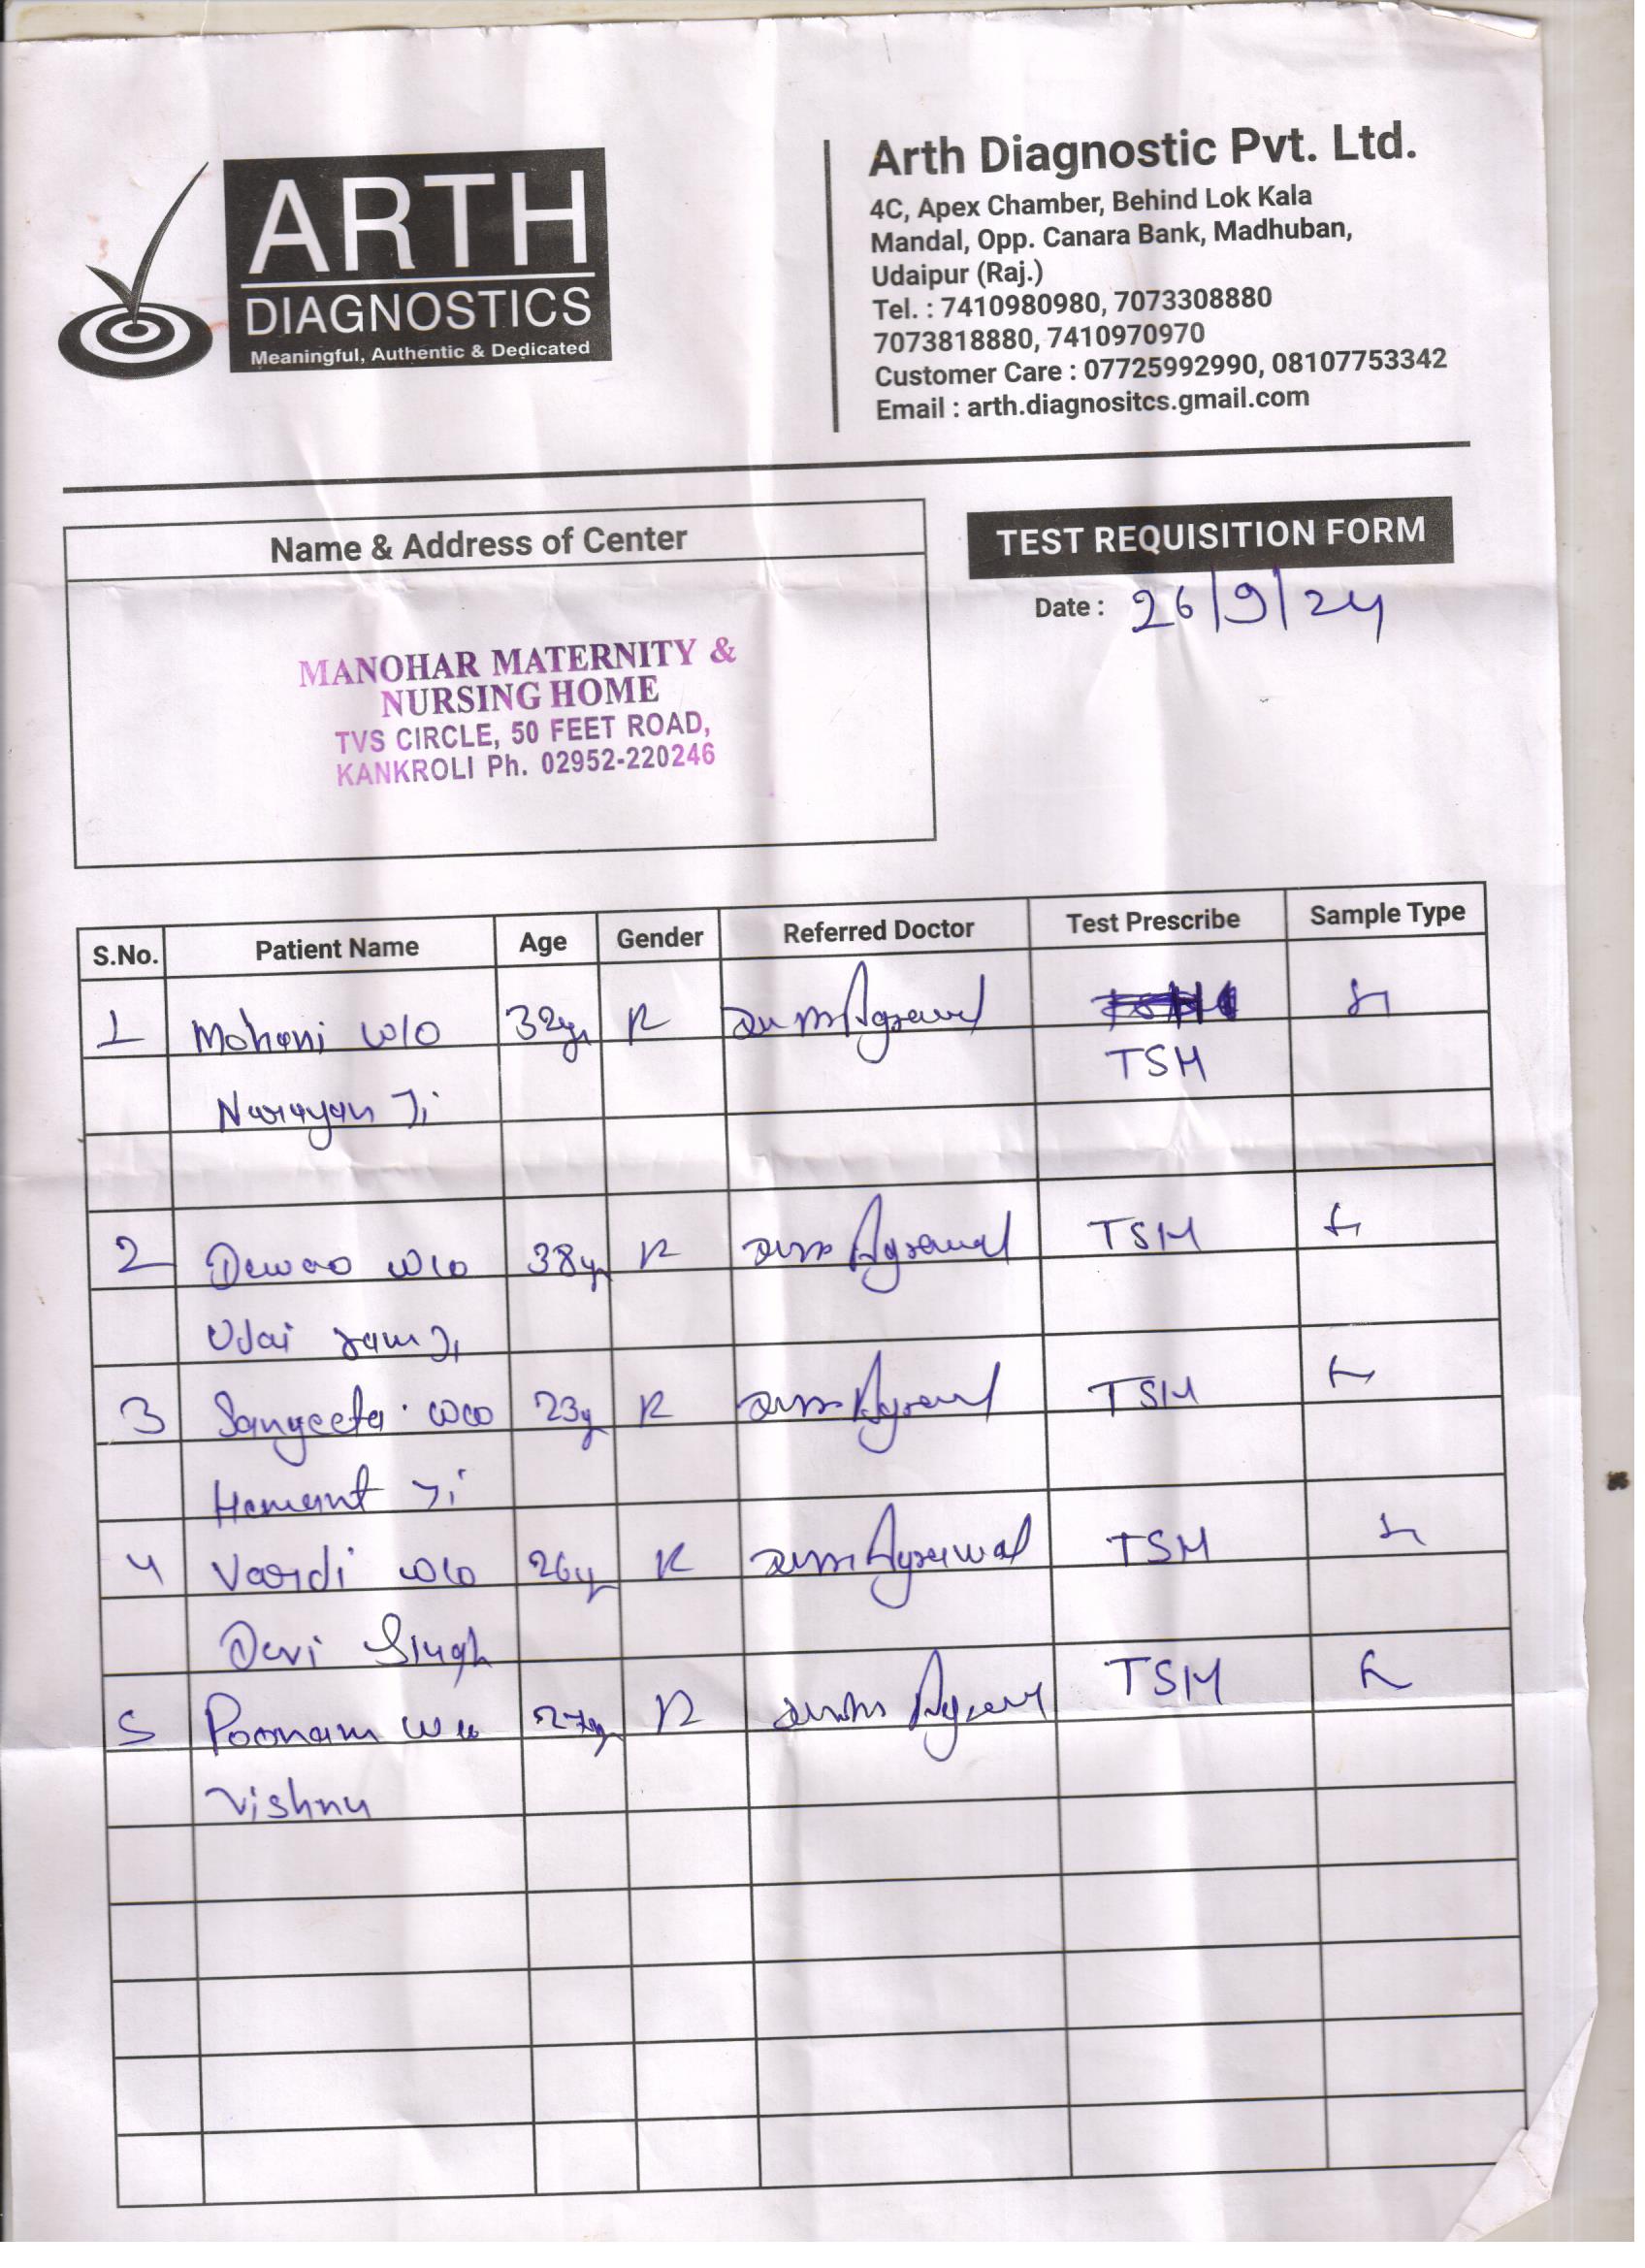 ARTH
DIAGNOSTICS
Meaningful, Authentic & Dedicated
Arth Diagnostic Pvt. Ltd.
4C, Apex Chamber, Behind Lok Kala
Mandal, Opp. Canara Bank, Madhuban,
Udaipur (Raj.)
Tel. : 7410980980, 7073308880
7073818880, 7410970970
Customer Care : 07725992990, 08107753342
Email : arth.diagnositcs.gmail.com
Name & Address of Center
TEST REQUISITION FORM
Date : 26/9/24
MANOHAR MATERNITY &
NURSING HOME
TVS CIRCLE, 50 FEET ROAD,
KANKROLI Ph. 02952-220246
S.No. Patient Name Age Gender Referred Doctor Test Prescribe Sample Type
1 Mohani w/o 32yr Agrawal
TSH
Narayan Ji
2 w/o 38yr Agrawal TSH
Udai ram Ji
3 Sangeeta w/o 23y Agrawal TSH
Hemant Ji
4 Vardi w/o 26yr Agrawal TSH
Devi Singh
5 Poonam w/o 27yr Agrawal TSH
Vishnu